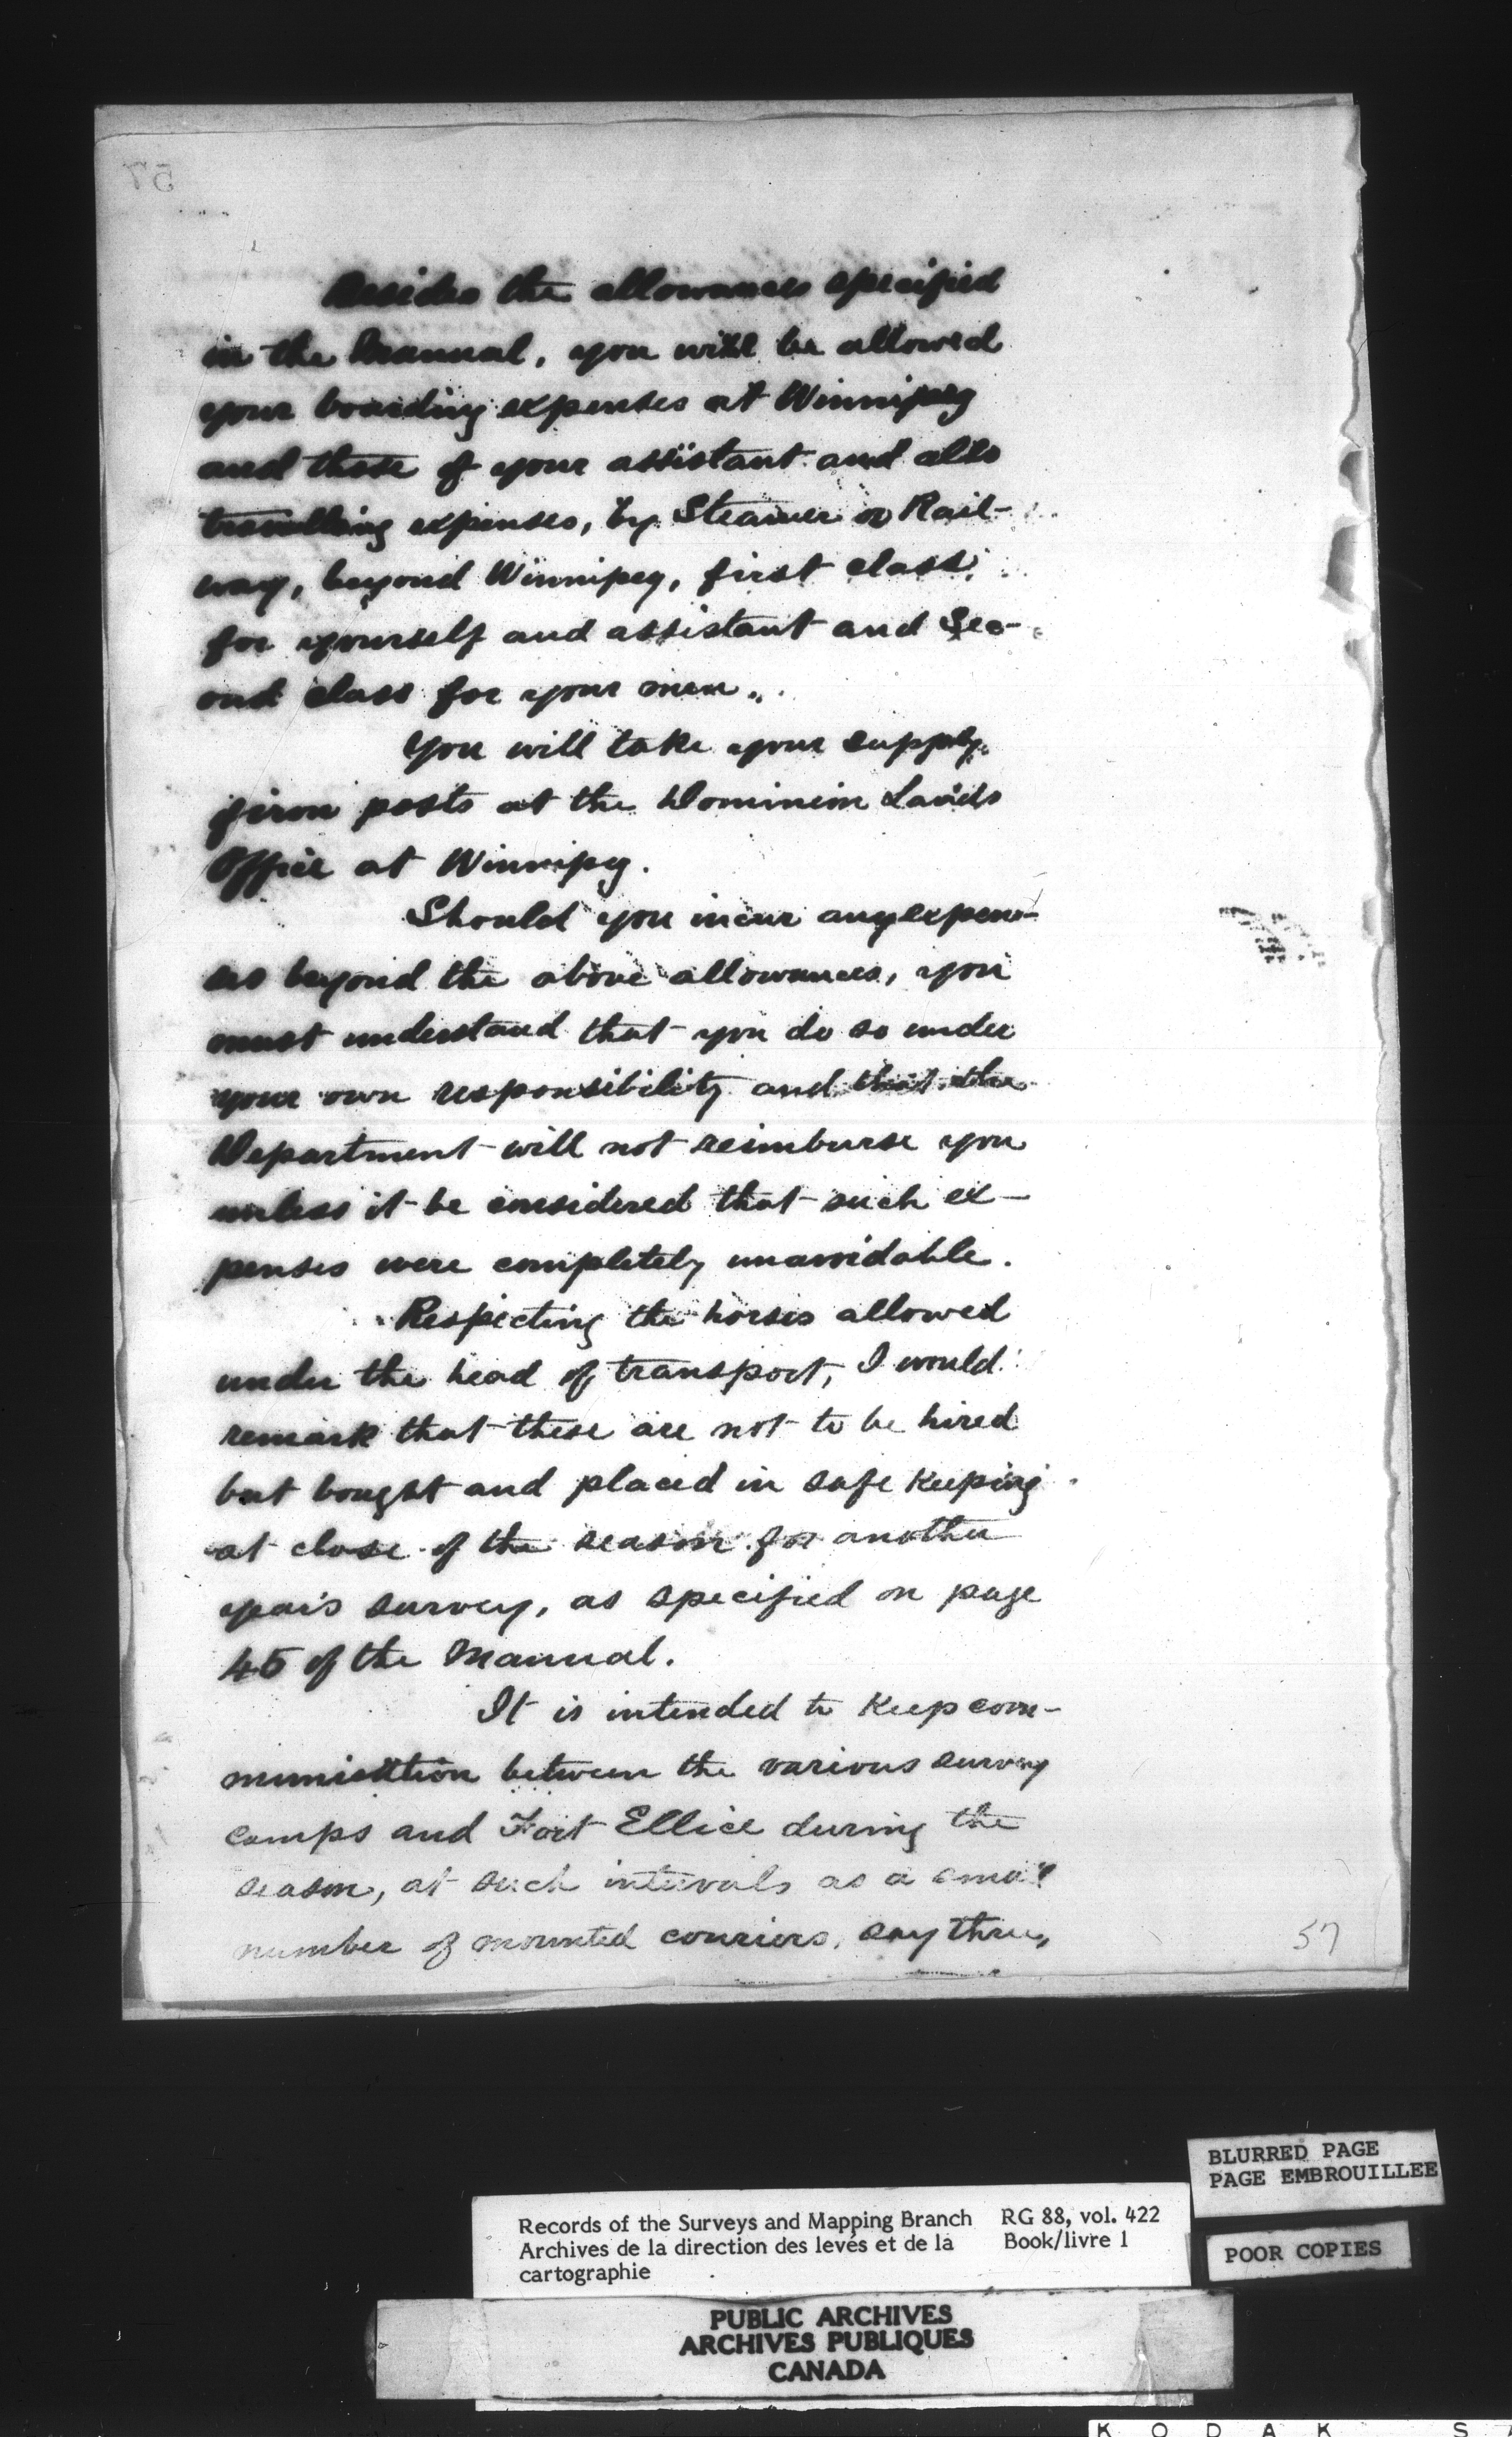 57
Besides the allowances specified
in the Manual, you will be allowed
your boarding expenses at Winnipeg
and those of your assistant and also
travelling expenses, by Steamer or Rail-
way, beyond Winnipeg, first class
for yourself and assistant and Sec-
ond class for your men.
You will take your supply
of iron posts at the Dominion Lands
Office at Winnipeg.
Should you incur any expen-
ses beyond the above allowances, you
must understand that you do so under
your own responsibility and that the
Department will not reimburse you
unless it be considered that such ex-
penses were completely unavoidable.
Respecting the horses allowed
under the head of transport, I would
remark that these are not to be hired
but bought and placed in safe keeping
at close of the season for another
year's survey, as specified on page
45 of the Manual.
It is intended to keep com-
munication between the various survey
camps and Fort Ellice during the
season, at such intervals as a small
number of mounted couriers, say three,
57
BLURRED PAGE
PAGE EMBROUILLEE
Records of the Surveys and Mapping Branch RG 88, vol. 422
Archives de la direction des levés et de la Book/livre 1
cartographie
POOR COPIES
PUBLIC ARCHIVES
ARCHIVES PUBLIQUES
CANADA
K O D A K S